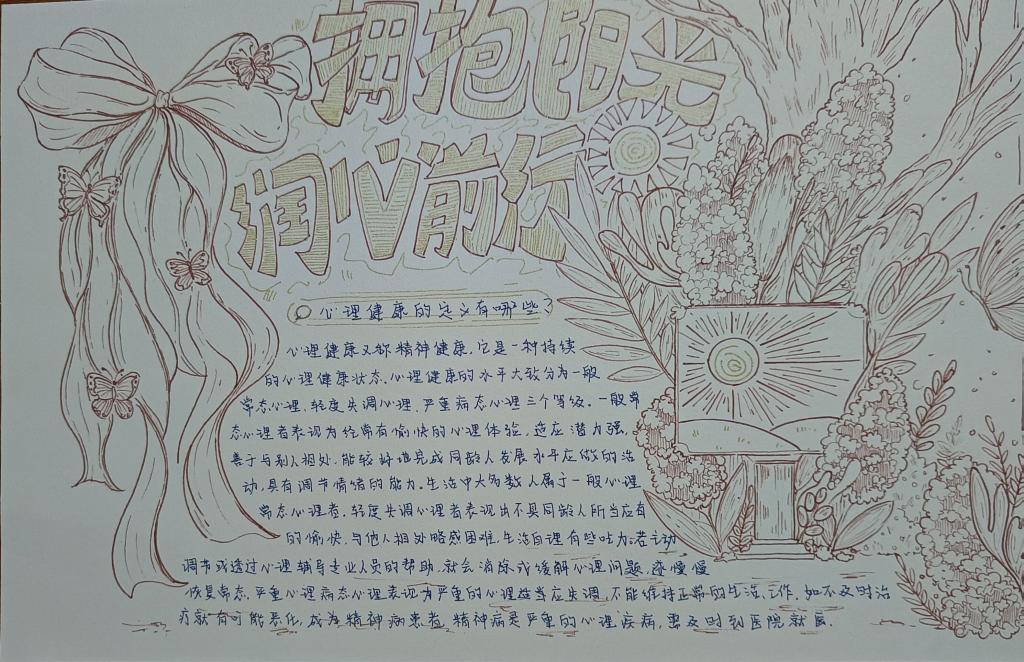 拥抱阳光
润心前行
心理健康的定义有哪些?
心理健康又称精神健康,它是一种持续
的心理健康状态.心理健康的水平大致分为一般
常态心理、轻度失调心理、严重病态心理三个等级.一般常
态心理者表现为经常有愉快的心理体验,适应潜力强,
善于与别人相处,能较好地完成同龄人发展水平应做的活
动,具有调节情绪的能力.生活中大多数人属于一般心理
常态心理者.轻度失调心理者表现出不具同龄人所当应有
的愉快,与他人相处略感困难,生活自理有些吃力.若主动
调节或透过心理辅导专业人员的帮助,就会消除或缓解心理问题,逐慢慢
恢复常态.严重心理病态心理表现为严重的心理适应失调,不能维持正常的生活、工作,如不及时治
疗就有可能恶化,成为精神病患者,精神病是严重的心理疾病,要及时到医院就医.